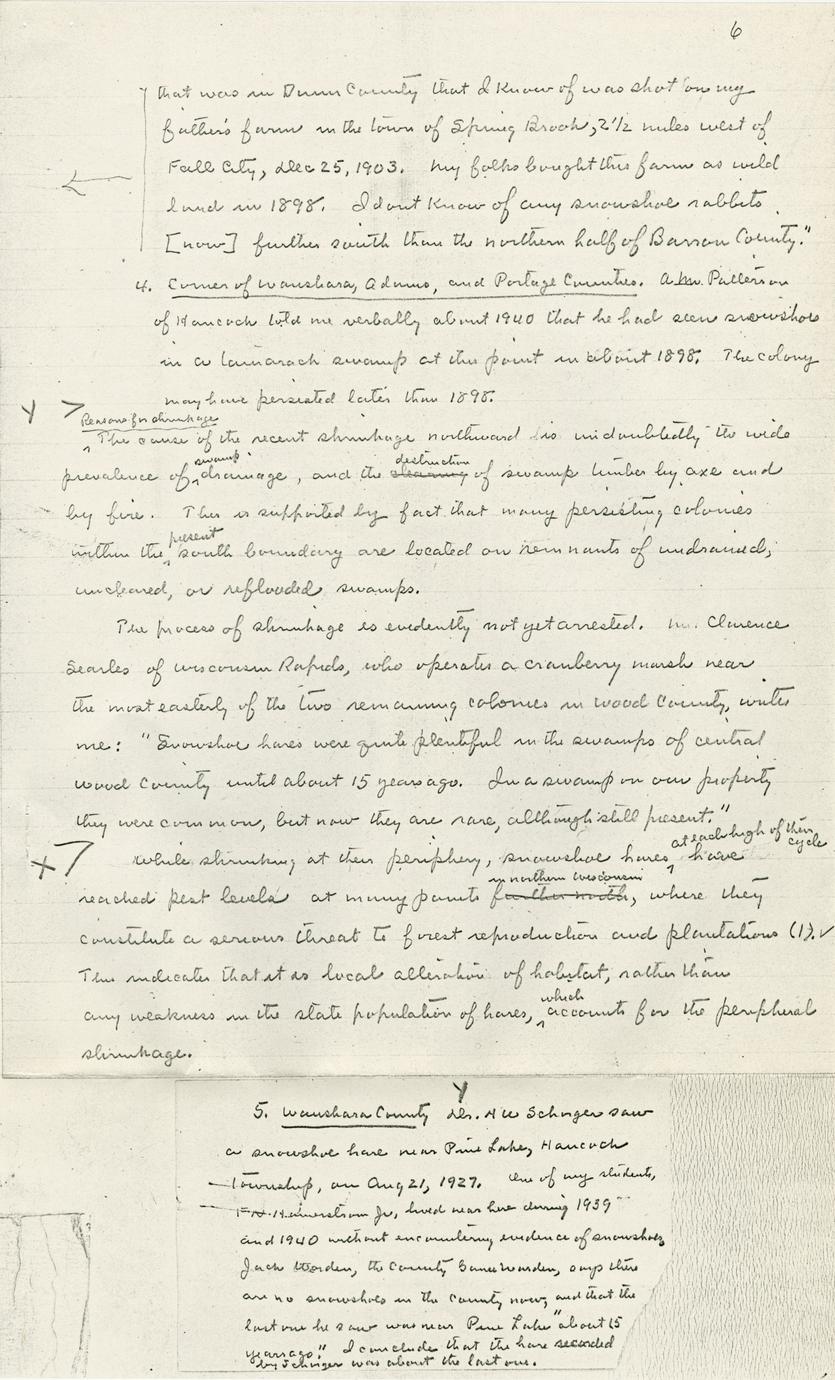 6
that was in Dunn County that I know of was shot on my
father's farm in the town of Spring Brook, 2 1/2 miles west of
Fall City, Dec 25, 1903. My folks bought this farm as wild
land in 1898. I dont know of any snowshoe rabbits
[now] further south than the northern half of Barron County."
4. Corner of Waushara, Adams, and Portage Counties. Patterson
of Hancock told me verbally about 1940 that he had seen snowshoes
in a tamarack swamp at this point in about 1898. The colony
may have persisted later than 1898.
Reasons for shrinkage
The cause of the recent shrinkage northward is undoubtedly the wide
prevalence of swamp drainage, and the clearing destruction of swamp timber by axe and
by fire. This is supported by fact that many persisting colonies
within the present south boundary are located on remnants of undrained,
uncleared, or reflooded swamps.
The process of shrinkage is evidently not yet arrested. Mr. Clarence
Searles of Wisconsin Rapids, who operates a cranberry marsh near
the most easterly of the two remaining colonies in Wood County, writes
me: "Snowshoe hares were quite plentiful in the swamps of central
Wood County until about 15 years ago. In a swamp on our property
they were common, but now they are rare, although still present."
While shrinking at their periphery, snowshoe hares at each high of their cycle have
reached pest levels at many points further north in northern Wisconsin, where they
constitute a serious threat to forest reproduction and plantations (1).
This indicates that it is local alteration of habitat, rather than
any weakness in the state population of hares, which accounts for the peripheral
shrinkage.
5. Waushara County Dr. A W Schorger saw
a snowshoe hare near Pine Lake, Hancock
Township, on Aug 21, 1927. One of my students,
F. N. Hamerstrom Jr, lived near here during 1939
and 1940 without encountering evidence of snowshoes.
Jack Worden, the County Game Warden, says there
are no snowshoes in the county now, and that the
last one he saw was near Pine Lake "about 15
years ago." I conclude that the hare recorded
by Schorger was about the last one.